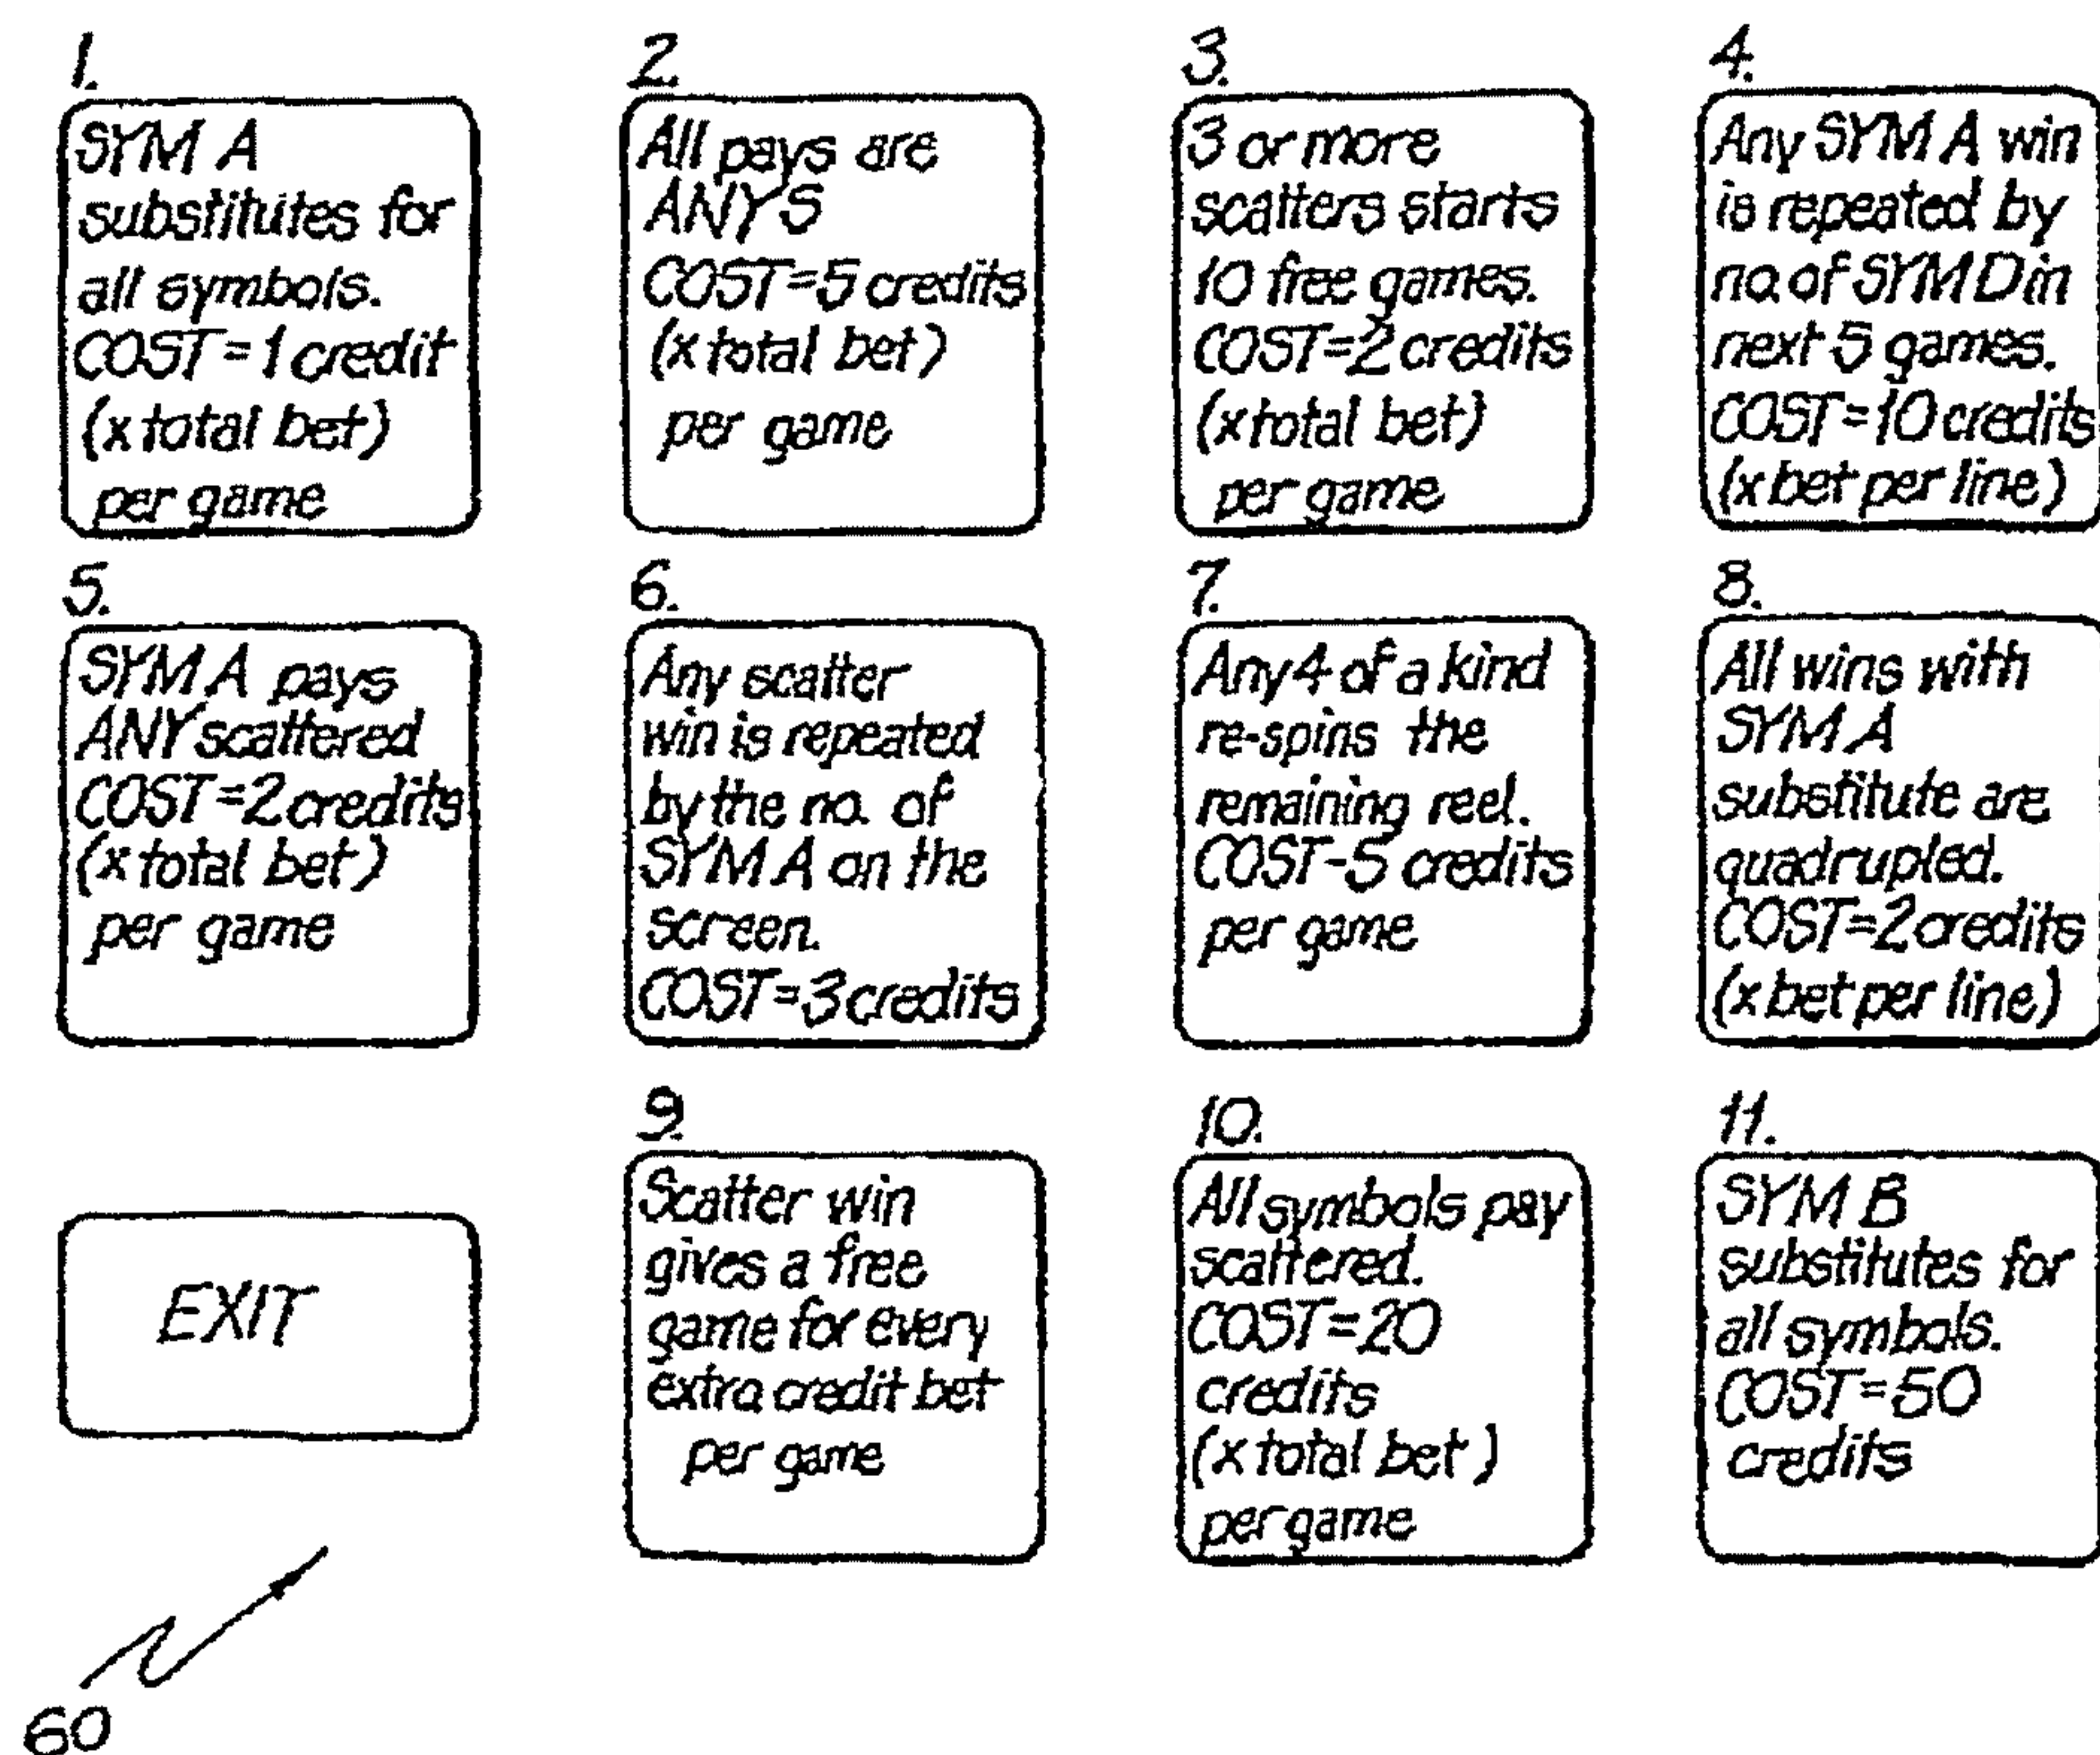 1.
SYM A
substitutes for
all symbols.
COST = 1 credit
(x total bet)
per game
2.
All pays are
ANYS
COST = 5 credits
(x total bet)
per game
3.
3 or more
scatters starts
10 free games.
COST = 2 credits
(x total bet)
per game
4.
Any SYM A win
is repeated by
no. of SYM D in
next 5 games.
COST = 10 credits
(x bet per line)
5.
SYM A pays
ANY scattered
COST = 2 credits
(x total bet)
per game
6.
Any scatter
win is repeated
by the no. of
SYM A on the
screen.
COST = 3 credits
7.
Any 4 of a kind
re-spins the
remaining reel.
COST - 5 credits
per game
8.
All wins with
SYM A
substitute are
quadrupled.
COST = 2 credits
(x bet per line)
EXIT
9.
Scatter win
gives a free
game for every
extra credit bet
per game
10.
All symbols pay
scattered.
COST = 20
credits
(x total bet)
per game
11.
SYM B
substitutes for
all symbols.
COST = 50
credits
60